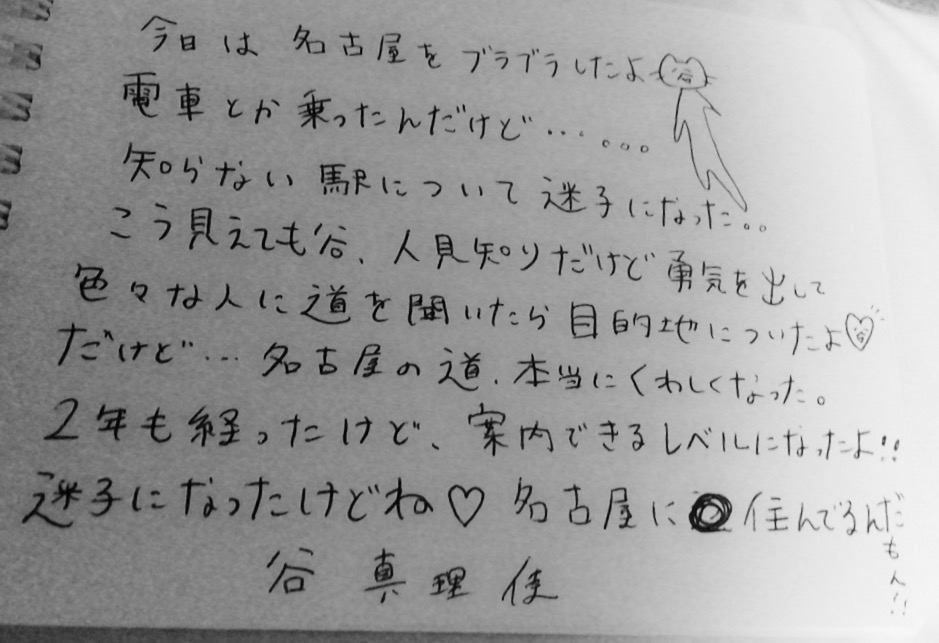 今日は名古屋をブラブラしたよ
電車とか乗ったんだけど…。。。
知らない駅について迷子になった。。
こう見えても谷、人見知りだけど勇気を出して
色々な人に道を聞いたら目的地についたよ♡
だけど…名古屋の道、本当にくわしくなった。
2年も経ったけど、案内できるレベルになったよ!!
迷子になったけどね♡名古屋に住んでるんだもん!!
谷真理佳